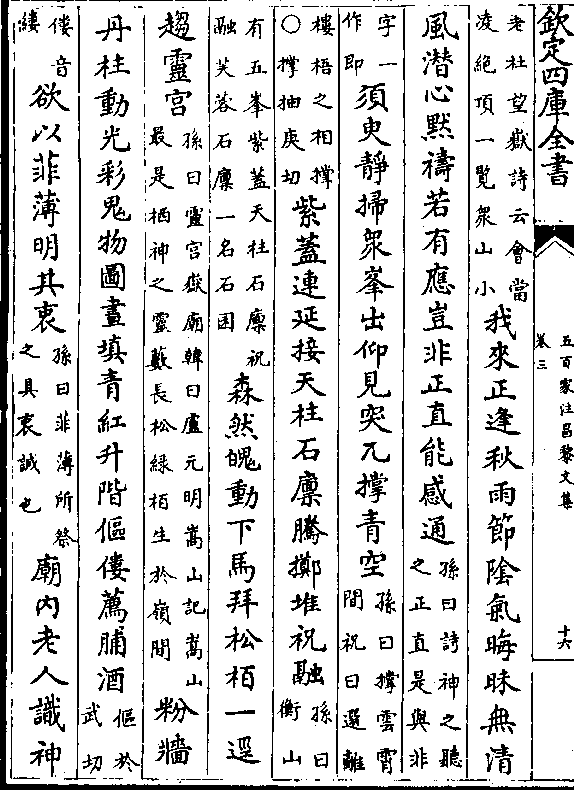 欽定四庫全書
五百家注昌黎文集
卷三
十六
老杜望嶽詩云會當
凌絶頂一覽衆山小
我來正逢秋雨節陰氣晦昧無清
風潛心默禱若有應豈非正直能感通
孫曰詩神之聽
之正直是與非
字一
作即
須臾靜掃衆峯出仰見突兀撑青空
孫曰撑雲霄
間祝曰選離
樓梧之相撑
○撑抽庚切
紫蓋連延接天柱石廩騰擲堆祝融
孫曰
衡山
有五峯紫蓋天柱石廩祝
融芙蓉石廩一名石囷
森然魄動下馬拜松栢一逕
趨靈宫
孫曰靈宫嶽廟韓曰盧元明嵩山記嵩山
最是栖神之靈藪長松緑栢生於嶺間
粉牆
丹柱動光彩鬼物圖畫填青紅升階傴僂薦脯酒
傴於
武切
僂音
縷
欲以菲薄明其衷
孫曰菲薄所祭
之具衷誠也
廟内老人識神